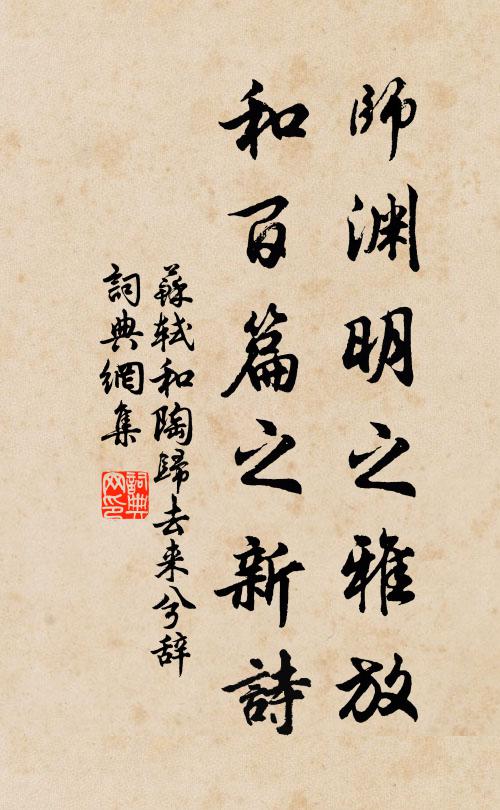 師渊明之雅放
和百篇之新詩
蘇軾和陶歸去来兮辞
詞典網集
詞典
网印